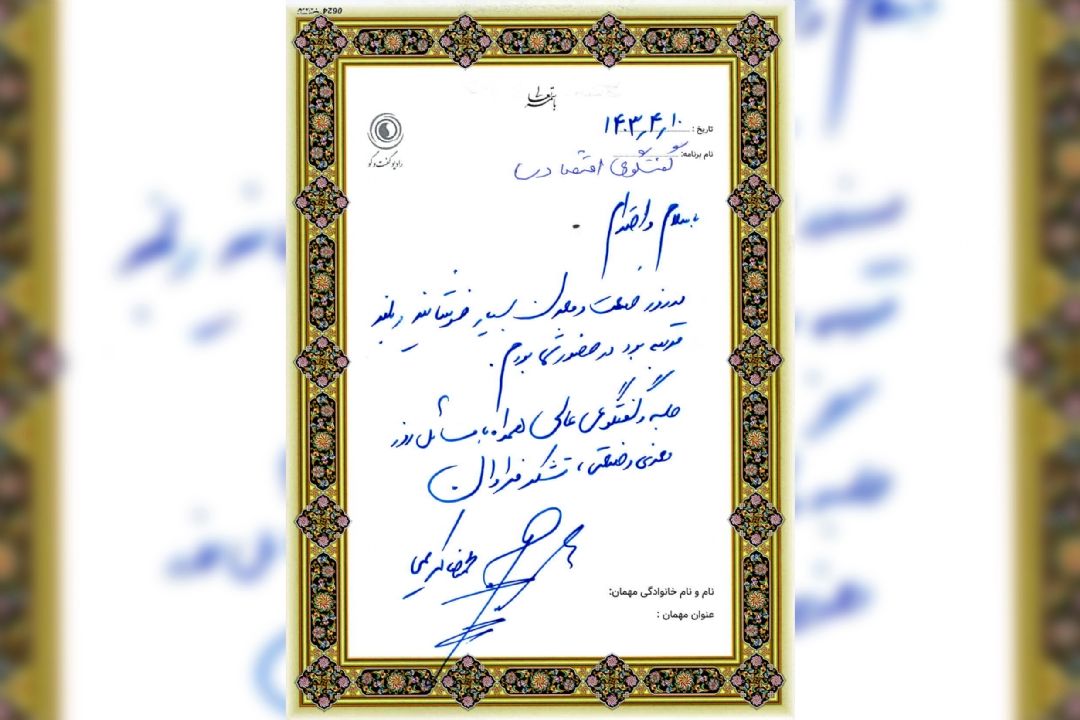 باسمه تعالی
رادیو گفت و گو
تاریخ : ۱۴۰۳٫۴٫۱۰
نام برنامه: گفتگوی اقتصادی
باسلام و احترام
در روز صنعت و معدن بسیار خوشایند و بلند
مرتبه بود در حضور شما بودم .
جلسه و گفتگوی عالی همراه با مسائل روز
معدنی و صنعتی ، تشکر فراوان
محمدرضا کریمی
نام و نام خانوادگی مهمان:
عنوان مهمان :